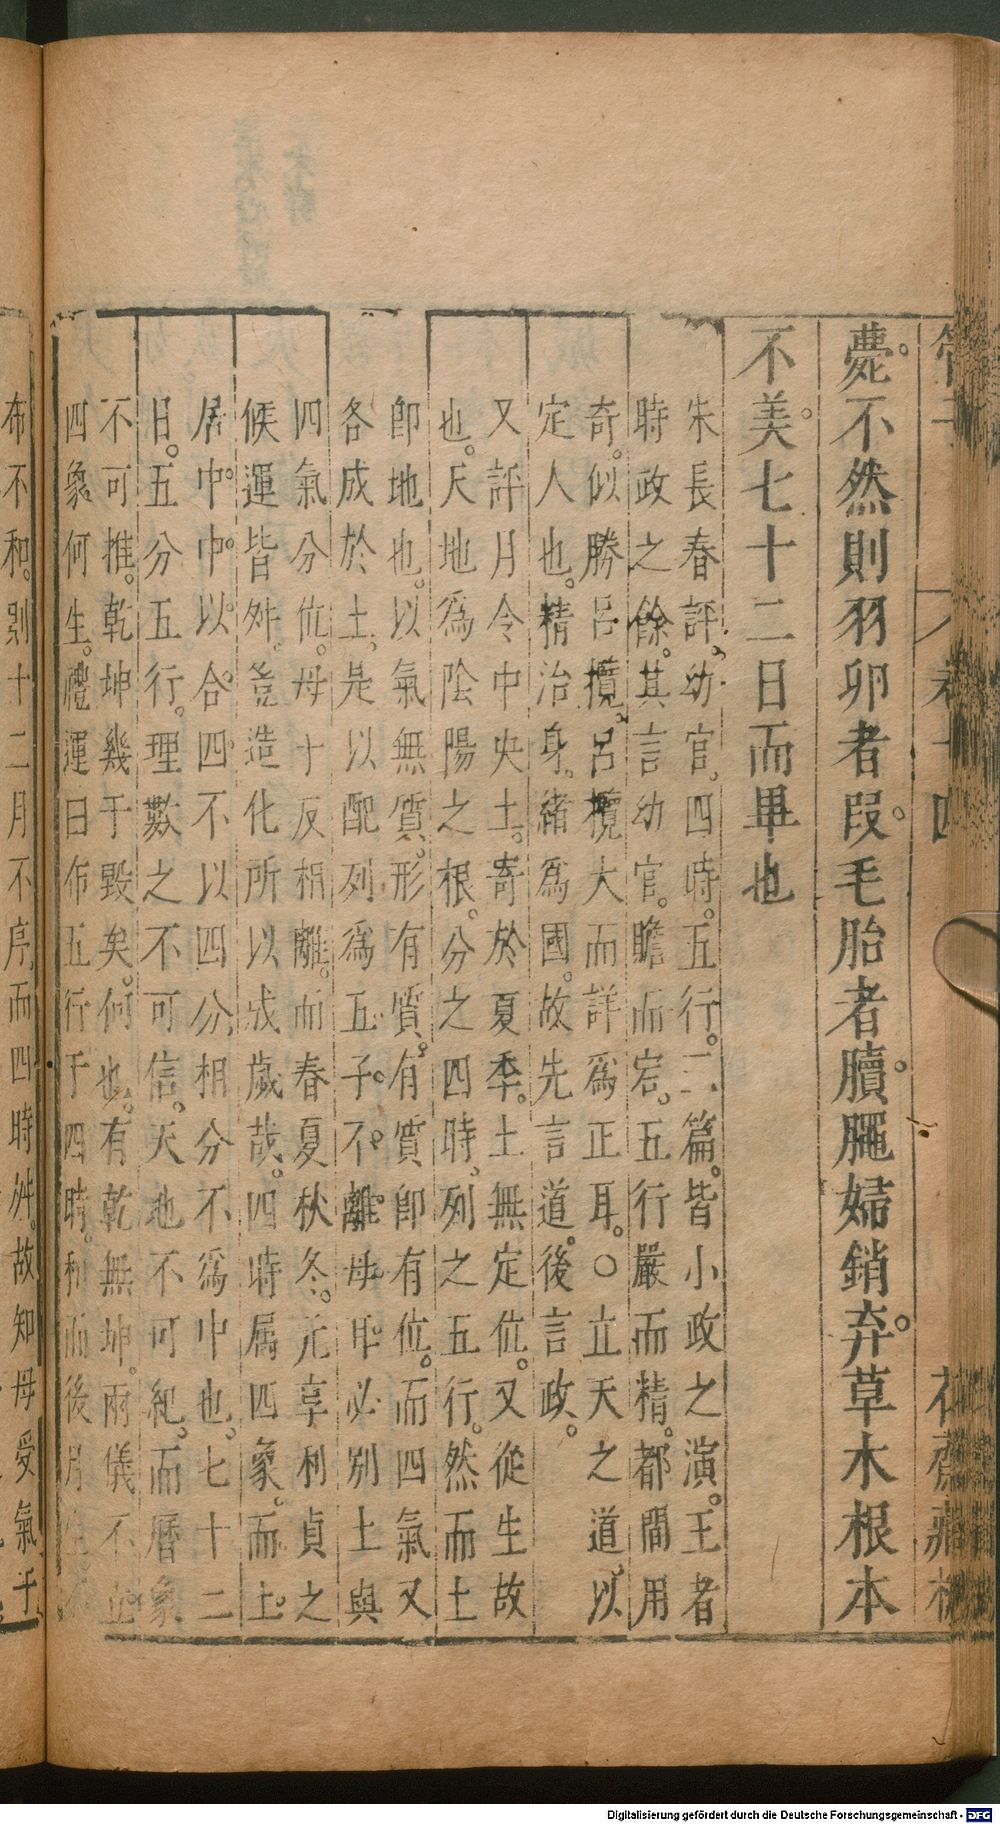 薨。不然則羽卵者段。毛胎者䐁。𦞁婦銷弃。草木根本
不美。七十二日而畢也
朱長春評。幼官。四時。五行。三篇。皆小政之演。王者
時政之餘。其言幼官。贍而宕。五行嚴而精。都間用
奇。似勝呂攬。呂攬大而詳為正耳。○立天之道。以
定人也。精治身。緒為國。故先言道。後言政。
又評月令中央土。寄於夏季。土無定位。又從生故
也。天地為陰陽之根。分之四時。列之五行。然而土
卽地也。以氣無質。形有質。有質卽有位。而四氣又
各成於土。是以配列為五子。不離母。母必別上與
四氣分位。母十反相離。而春夏秋冬。元享利貞之
候運皆舛。豈造化所以成歲哉。四時属四象。而土。
居中。中以合四。不以四分。相分不為中也。七十二
日。五分五行。理數之不可信。天地不可紀。而曆象
不可推。乾坤幾于毀矣。何也。有乾無坤。兩儀不立
四象何生。禮運曰布五行于四時。和而後月生
布不和。別十二月不序。而四時舛。故知母受氣于
Digitalisierung gefördert durch die Deutsche Forschungsgemeinschaft - DFG